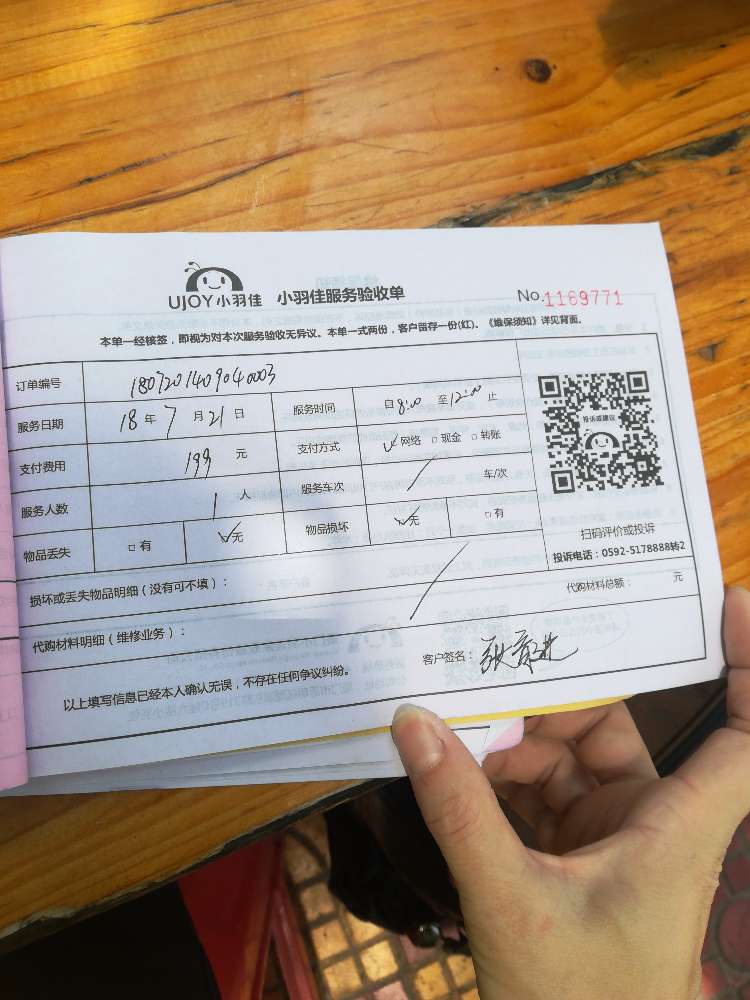 UJOY小羽佳 小羽佳服务验收单 No.1169771
本单一经核签，即视为对本次服务验收无异议。本单一式两份，客户留存一份(红)。《维保须知》详见背面。
订单编号 1807201409040003
服务日期 18年7月21日 服务时间 自8:00至12:00止
支付费用 199元 支付方式 ✓网络 □现金 □转账
服务人数 1人 服务车次 / 车/次
物品丢失 □有 ✓无 物品损坏 ✓无 □有
投诉或建议
扫码评价或投诉
投诉电话：0592-5178888转2
损坏或丢失物品明细（没有可不填）：
代购材料明细（维修业务）： / 代购材料总额： 元
以上填写信息已经本人确认无误，不存在任何争议纠纷。 客户签名：